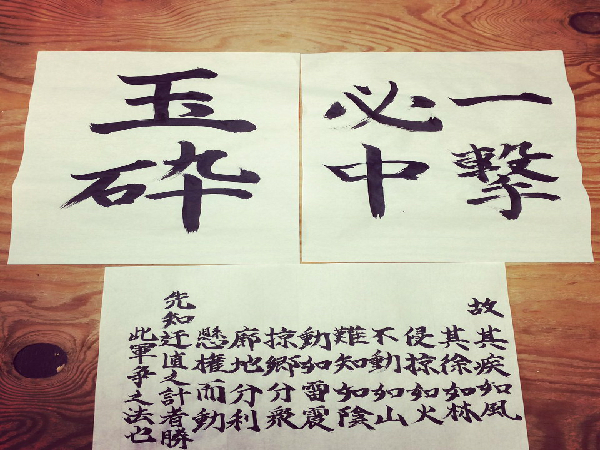 一撃
必中
玉砕
故其疾如風
其徐如林
侵掠如火
不動如山
難知如陰
動如雷震
掠郷分衆
廓地分利
懸權而動
先知迂直之計者勝
此軍爭之法也